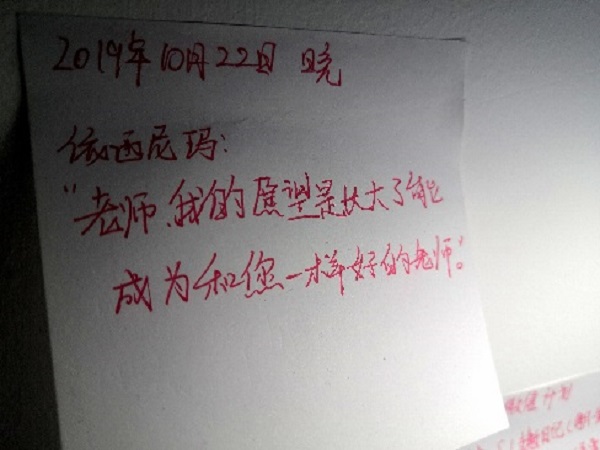 2019年10月22日 晓
依西尼玛:
"老师、我的愿望是长大了能
成为和您一样好的老师。"
计划
日记